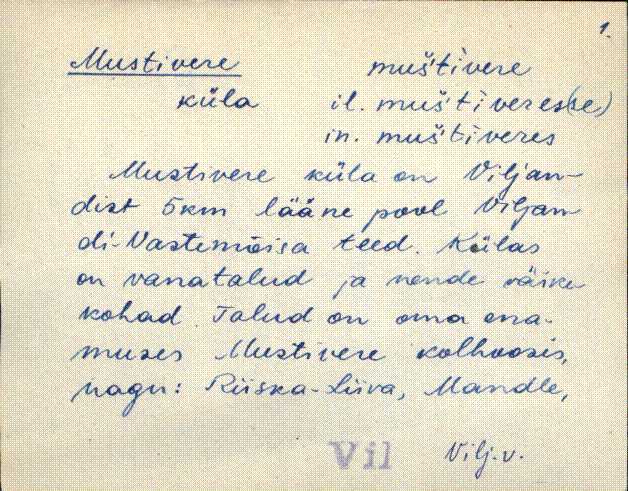 1.
Mustivere muštivere
küla il. muštiveres(se)
in. muštiveres
Mustivere küla on Viljan-
dist 5km lääne pool Viljan
di-Vastemõisa teed. Külas
on vanatalud ja nende väike
kohad. Talud on oma ena-
muses Mustivere kolhoosis,
nagu: Riiska-Liiva, Mandle,
Vil Vilj.v.